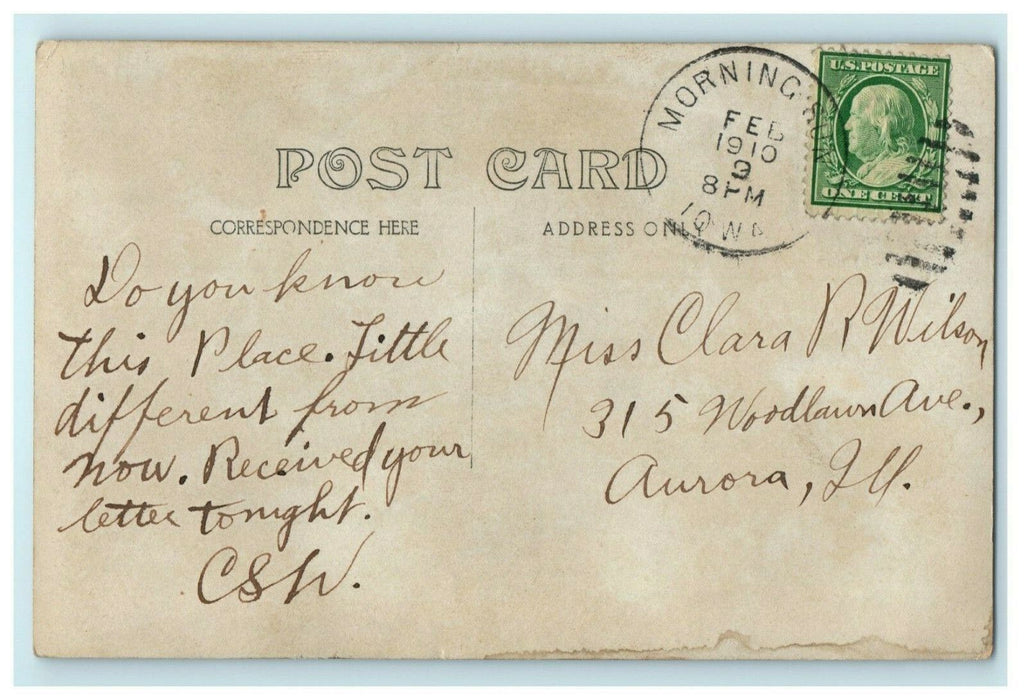 POST CARD
CORRESPONDENCE HERE
ADDRESS ONLY
MORNING SUN
FEB
1910
9
8 PM
IOWA
U.S. POSTAGE
ONE CENT
Do you know
this Place. Little
different from
now. Received your
letter tonight.
CSW.
Miss Clara R Wilson
315 Woodlawn Ave.,
Aurora, Ill.